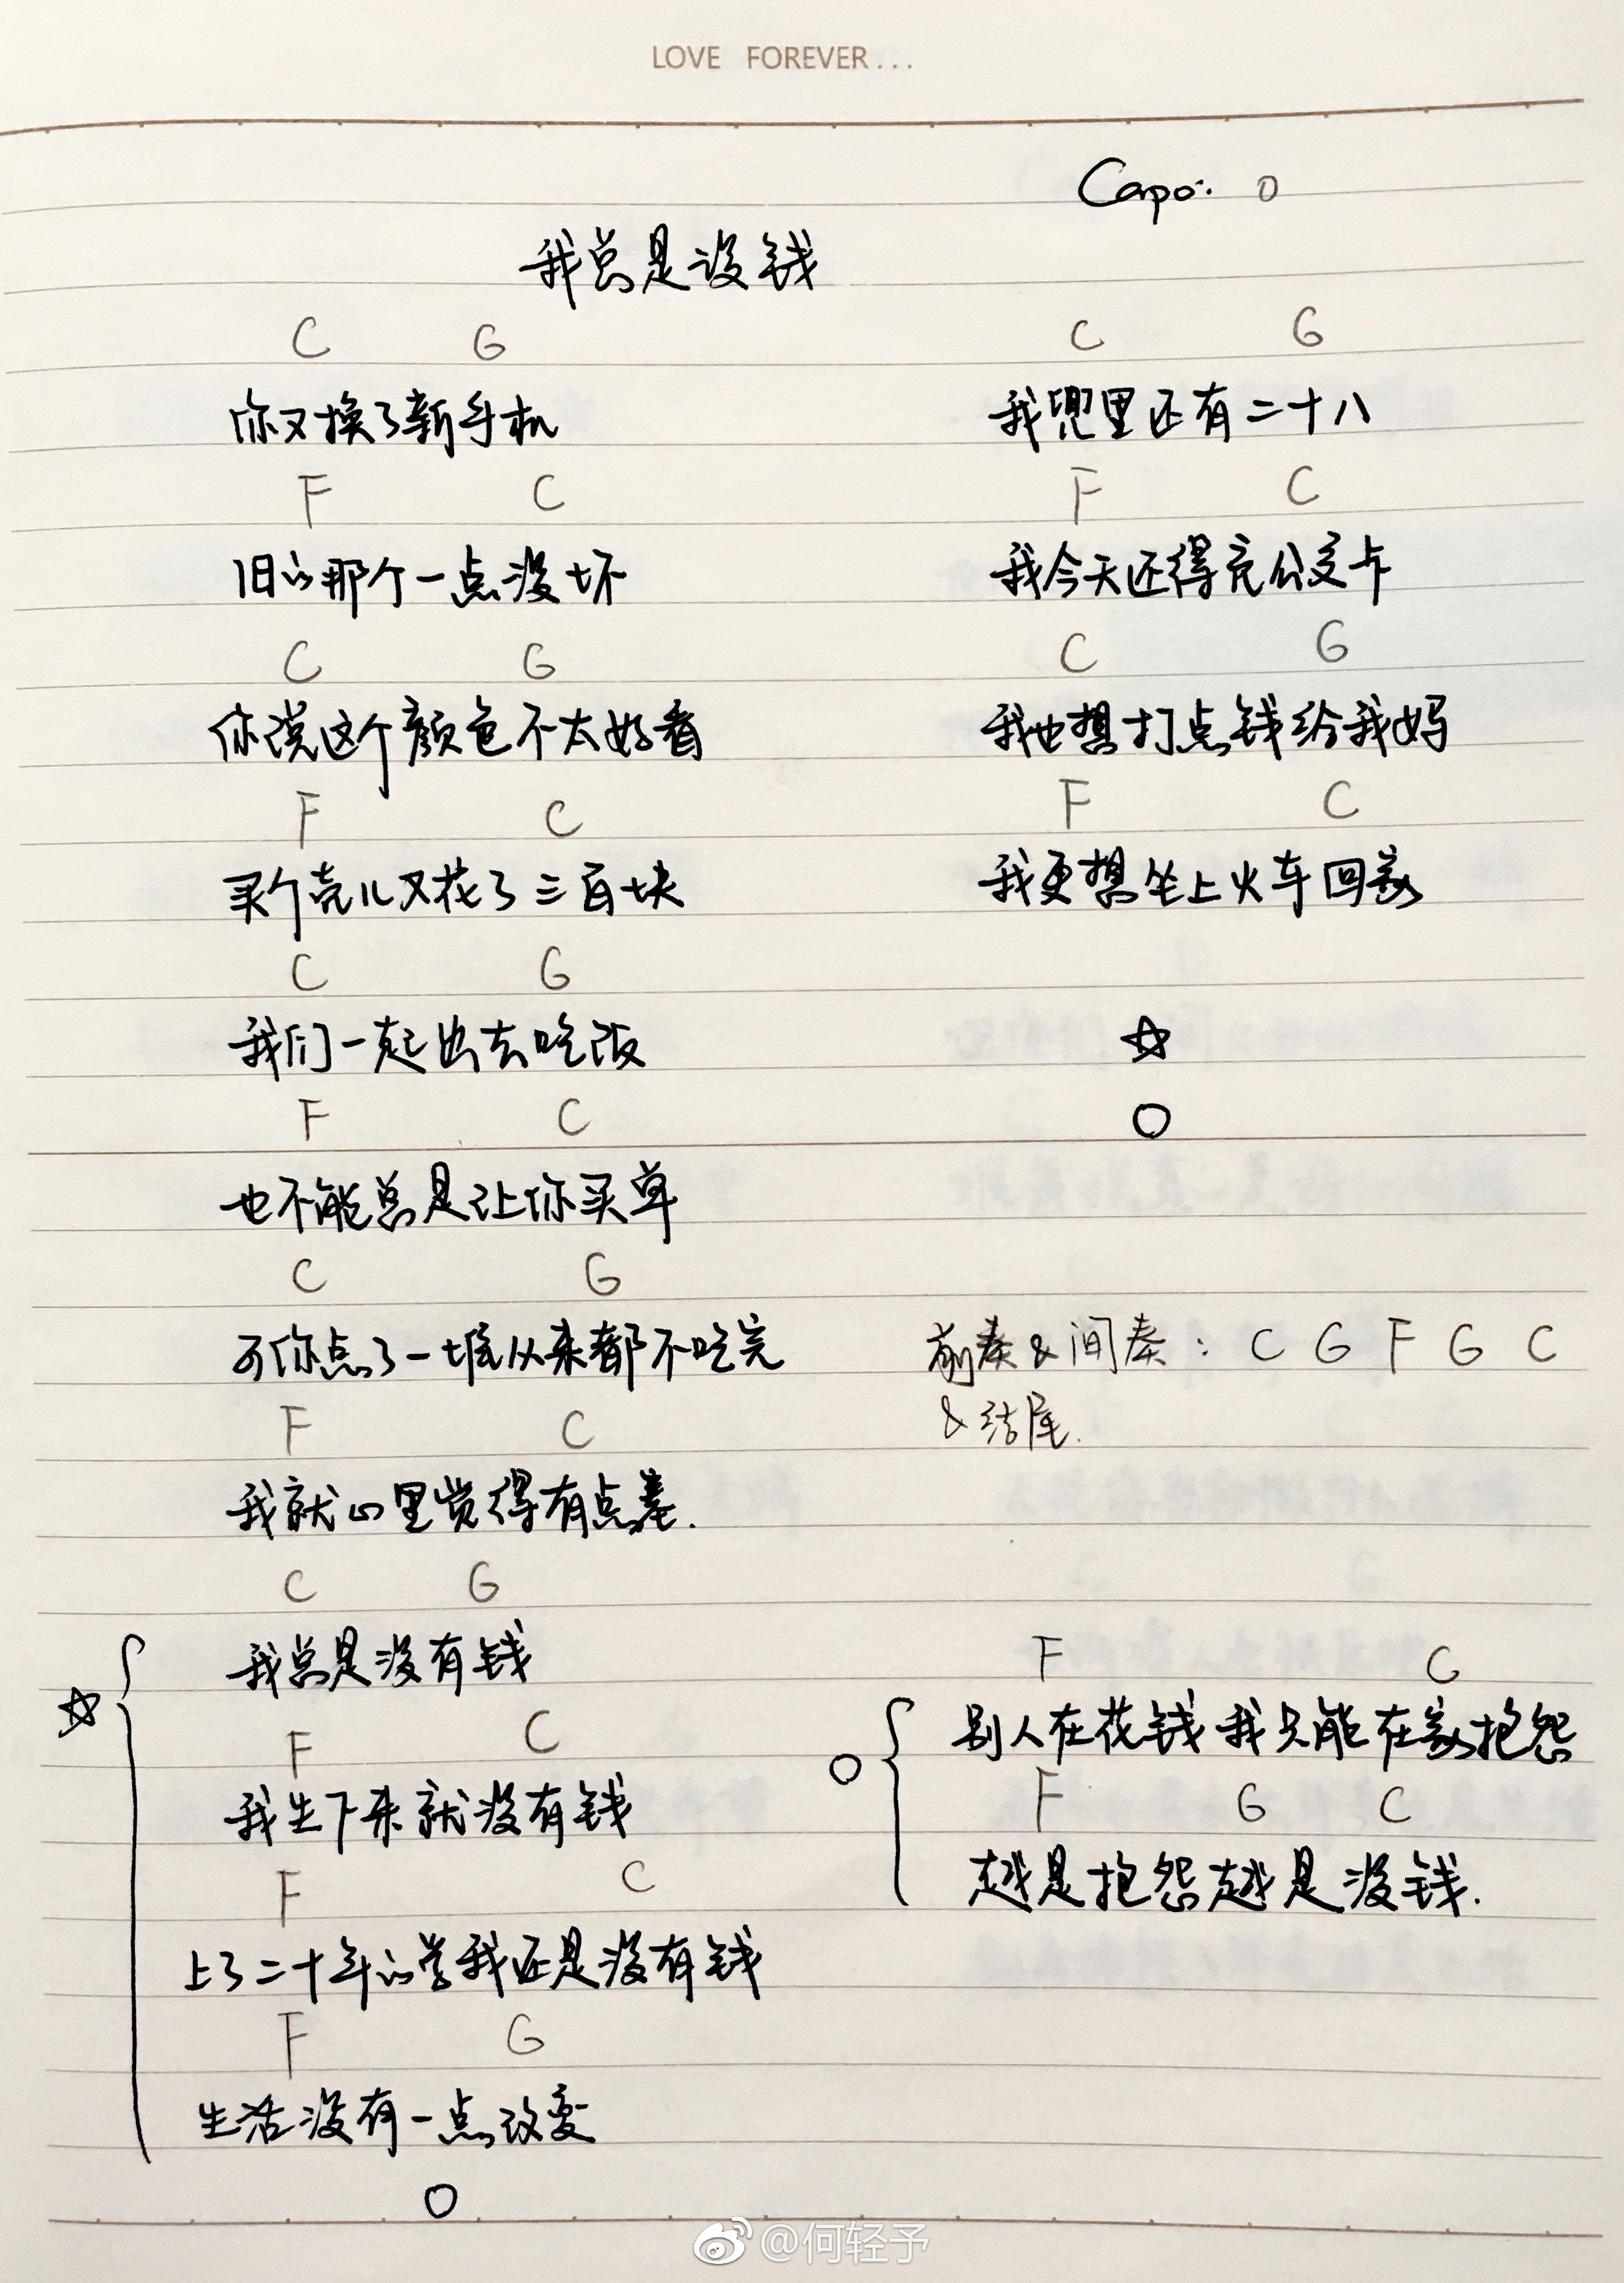 LOVE FOREVER...
Capo: 0
我总是没钱
C G
你又换了新手机
F C
旧的那个一点没坏
C G
你说这个颜色不太好看
F C
买个壳儿又花了三百块
C G
我们一起出去吃饭
F C
也不能总是让你买单
C G
可你点了一堆从来都不吃完
F C
我就心里觉得有点羞.
C G
☆ 我总是没有钱
F C
我生下来就没有钱
F C
上了二十年的学我还是没有钱
F G
生活没有一点改变
○
C G
我兜里还有二十八
F C
我今天还得充公交卡
C G
我也想打点钱给我妈
F C
我更想坐上火车回家
☆
○
前奏&间奏: C G F G C
&结尾.
F G
○ 别人在花钱 我只能在家抱怨
F G C
越是抱怨越是没钱.
@何轻予